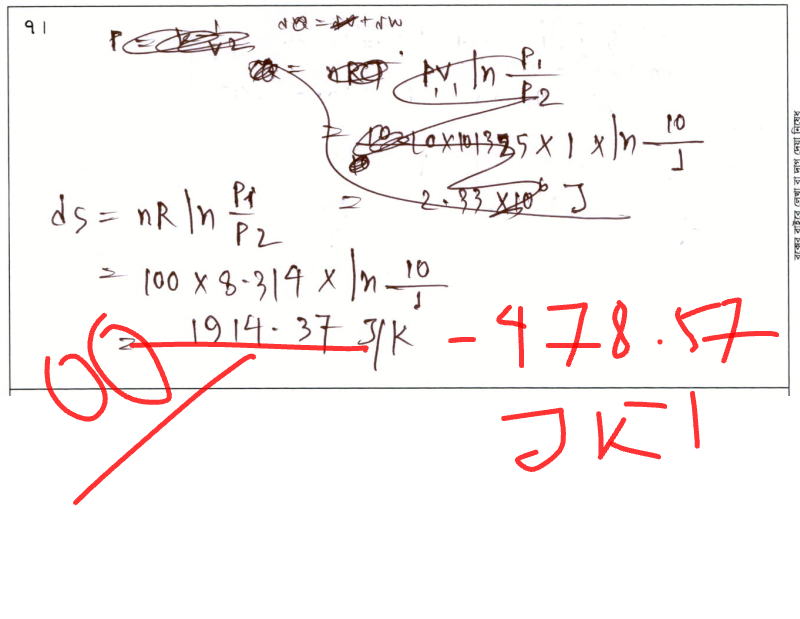 91
dQ = dU + dW
= nRT P₁V₁ ln P₁/P₂
= 10 × 101325 × 1 × ln 10/1
= 2.33 × 10⁶ J
ds = nR ln P₁/P₂
= 100 × 8.314 × ln 10/1
= 1914.37 J/K
- 478.57
JK⁻¹
00
বক্সের বাইরে লেখা বা দাগ দেয়া নিষেধ